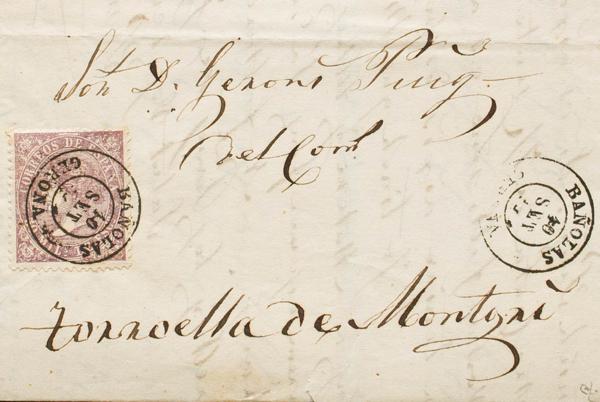 Sor. D. Geroni Puig
del Com.
CORREOS DE
BAÑOLAS
10
SET
GERONA
BAÑOLAS
10
SET
torroella de Montgrí